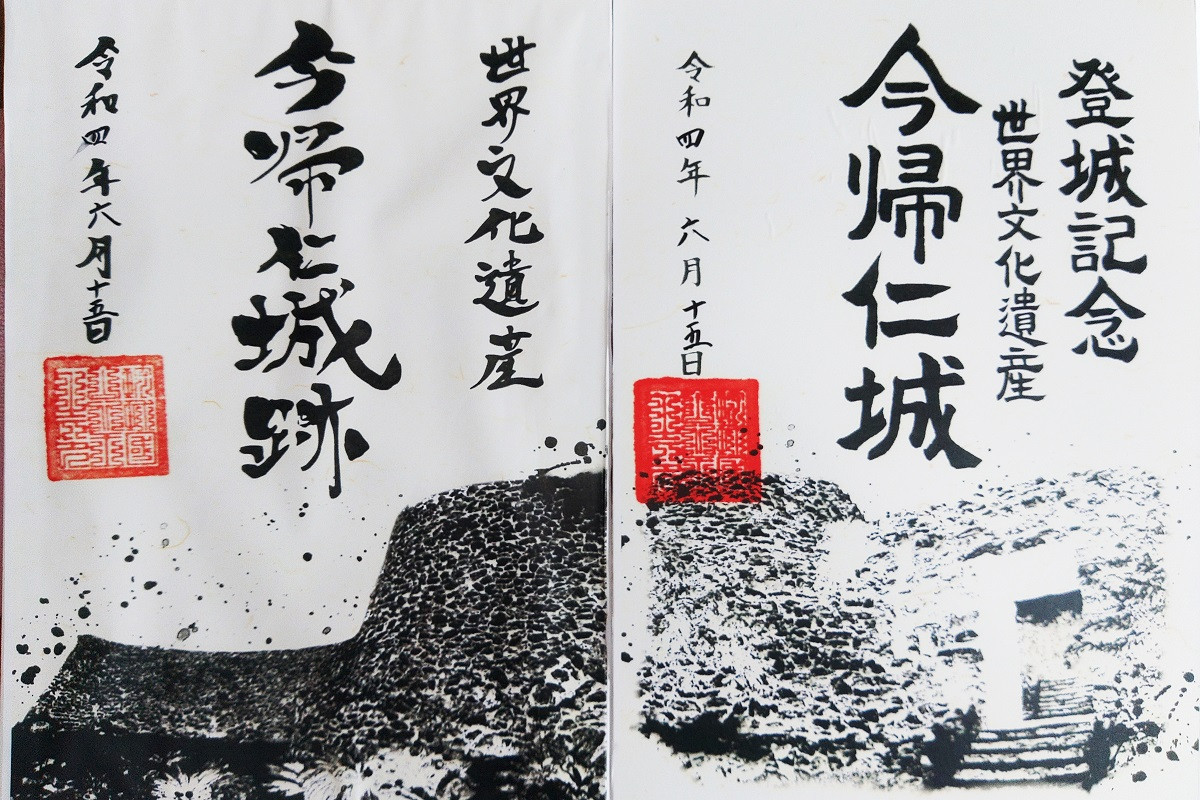 登城記念
世界文化遺産
今帰仁城
令和四年 六月 十五日
世界文化遺産
今帰仁城跡
令和四年六月十五日